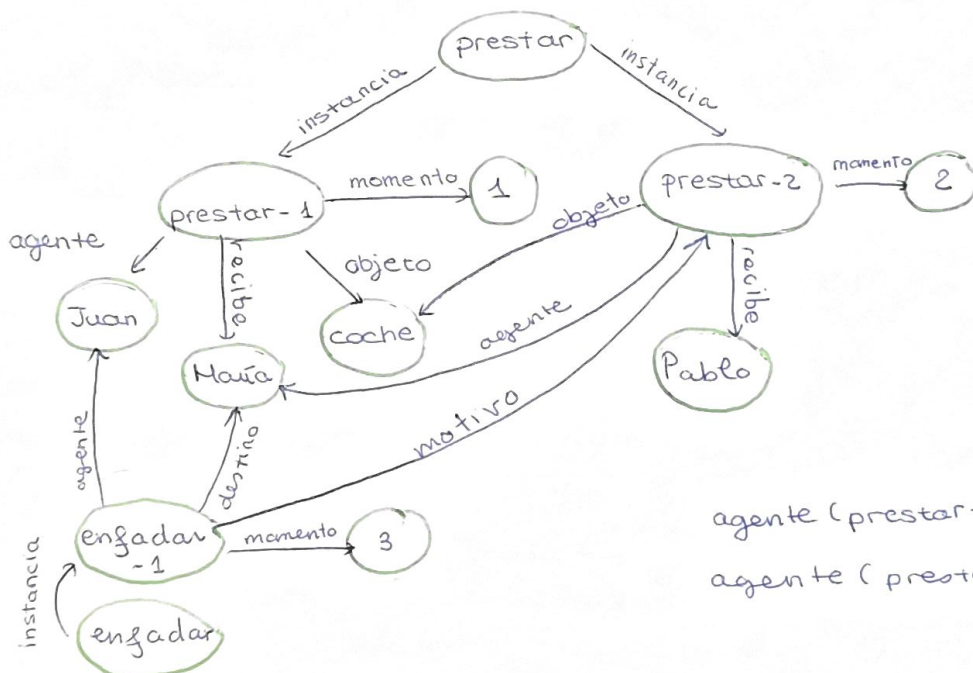 prestar
instancia
instancia
prestar-1
momento
1
prestar-2
momento
2
agente
recibe
objeto
objeto
recibe
Juan
María
coche
agente
Pablo
agente
destino
motivo
enfadar
-1
momento
3
instancia
enfadar
agente (prestar-
agente (prest